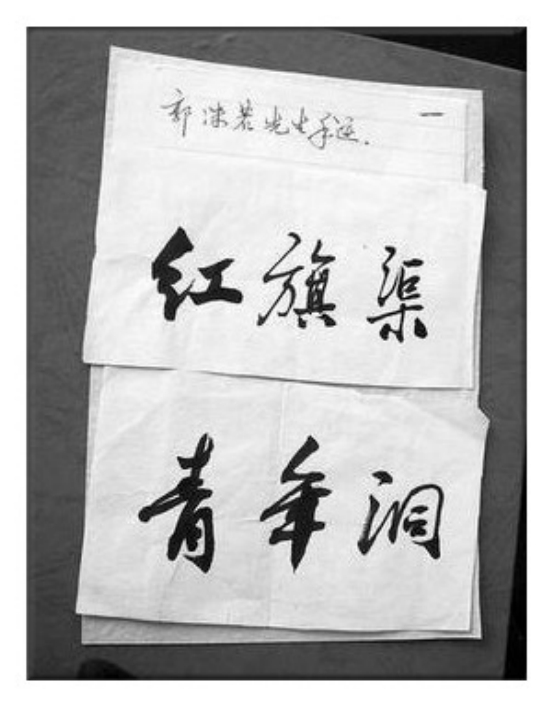 郭沫若先生手迹. 一
红旗渠
青年洞